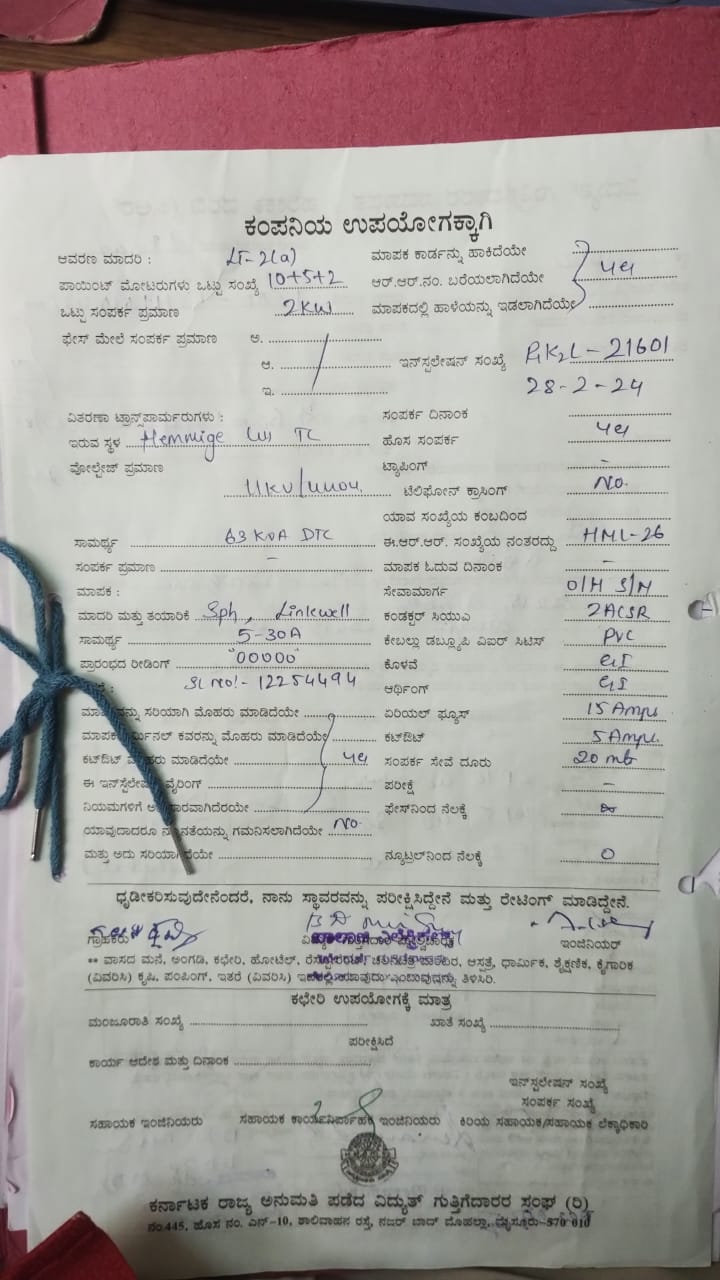 ಕಂಪನಿಯ ಉಪಯೋಗಕ್ಕಾಗಿ
ಆವರಣ ಮಾದರಿ : LT-2(a) ಮಾಪಕ ಕಾರ್ಡನ್ನು ಹಾಕಿದೆಯೇ
ಪಾಯಿಂಟ್ ಮೋಟರುಗಳು ಒಟ್ಟು ಸಂಖ್ಯೆ 10+5+2 ಆರ್.ಆರ್.ನಂ. ಬರೆಯಲಾಗಿದೆಯೇ yes
ಒಟ್ಟು ಸಂಪರ್ಕ ಪ್ರಮಾಣ 2KW ಮಾಪಕದಲ್ಲಿ ಹಾಳೆಯನ್ನು ಇಡಲಾಗಿದೆಯೇ
ಫೇಸ್ ಮೇಲೆ ಸಂಪರ್ಕ ಪ್ರಮಾಣ ಅ.
ಆ. ಇನ್‌ಸ್ಟಲೇಷನ್ ಸಂಖ್ಯೆ 21601
ಇ. 28-2-24
ವಿತರಣಾ ಟ್ರಾನ್ಸ್‌ಪಾರ್ಮರುಗಳು : ಸಂಪರ್ಕ ದಿನಾಂಕ
ಇರುವ ಸ್ಥಳ Hemmige TC ಹೊಸ ಸಂಪರ್ಕ yes
ವೋಲ್ಟೇಜ್ ಪ್ರಮಾಣ ಟ್ಯಾಪಿಂಗ್ -
11KV/440V. ಟೆಲಿಫೋನ್ ಕ್ರಾಸಿಂಗ್ No.
ಯಾವ ಸಂಖ್ಯೆಯ ಕಂಬದಿಂದ
ಸಾಮರ್ಥ್ಯ 63 KVA DTC ಈ.ಆರ್.ಆರ್. ಸಂಖ್ಯೆಯ ನಂತರದ್ದು HML-26
ಸಂಪರ್ಕ ಪ್ರಮಾಣ - ಮಾಪಕ ಓದುವ ದಿನಾಂಕ -
ಮಾಪಕ : ಸೇವಾಮಾರ್ಗ O/H S/M
ಮಾದರಿ ಮತ್ತು ತಯಾರಿಕೆ Sph, Linkwell ಕಂಡಕ್ಟರ್ ಸಿಯುಎ 2ACSR
ಸಾಮರ್ಥ್ಯ 5-30A ಕೇಬಲ್ಲು ಡಬ್ಲ್ಯೂಪಿ ವಿಐರ್ ಸಿಟಿಸ್ PVC
ಪ್ರಾರಂಭದ ರೀಡಿಂಗ್ "00000" ಕೊಳವೆ GI
Sl no:- 12254494 ಆರ್ಥಿಂಗ್ GI
ಸರಿಯಾಗಿ ಮೊಹರು ಮಾಡಿದೆಯೇ ಏರಿಯಲ್ ಫ್ಯೂಸ್ 15 Amps
ಕವರನ್ನು ಮೊಹರು ಮಾಡಿದೆಯೇ ಕಟ್‌ಔಟ್ 5 Amps.
ಕಟ್‌ಔಟ್ ಮೊಹರು ಮಾಡಿದೆಯೇ yes ಸಂಪರ್ಕ ಸೇವೆ ದೂರು 20 mts
ಈ ವೈರಿಂಗ್ ಪರೀಕ್ಷೆ -
ನಿಯಮಗಳಿಗೆ ಫೇಸ್‌ನಿಂದ ನೆಲಕ್ಕೆ
ಯಾವುದಾದರೂ ಗಮನಿಸಲಾಗಿದೆಯೇ No.
ಮತ್ತು ಅದು ನ್ಯೂಟ್ರಲ್‌ನಿಂದ ನೆಲಕ್ಕೆ 0
ಧೃಡೀಕರಿಸುವುದೇನೆಂದರೆ, ನಾನು ಸ್ಥಾವರವನ್ನು ಪರೀಕ್ಷಿಸಿದ್ದೇನೆ ಮತ್ತು ರೇಟಿಂಗ್ ಮಾಡಿದ್ದೇನೆ.
ಗ್ರಾಹಕರು ಇಂಜಿನಿಯರ್
** ವಾಸದ ಮನೆ, ಅಂಗಡಿ, ಕಛೇರಿ, ಹೋಟೆಲ್, ಆಸ್ಪತ್ರೆ, ಧಾರ್ಮಿಕ, ಶೈಕ್ಷಣಿಕ, ಕೈಗಾರಿಕ
(ವಿವರಿಸಿ) ಕೃಷಿ, ಪಂಪಿಂಗ್, ಇತರೆ (ವಿವರಿಸಿ) ತಿಳಿಸಿರಿ.
ಕಛೇರಿ ಉಪಯೋಗಕ್ಕೆ ಮಾತ್ರ
ಮಂಜೂರಾತಿ ಸಂಖ್ಯೆ ಖಾತೆ ಸಂಖ್ಯೆ
ಪರೀಕ್ಷಿಸಿದೆ
ಕಾರ್ಯ ಆದೇಶ ಮತ್ತು ದಿನಾಂಕ
ಇನ್‌ಸ್ಟಲೇಷನ್ ಸಂಖ್ಯೆ
ಸಂಪರ್ಕ ಸಂಖ್ಯೆ
ಸಹಾಯಕ ಇಂಜಿನಿಯರು ಸಹಾಯಕ ಕಾರ್ಯನಿರ್ವಾಹಕ ಇಂಜಿನಿಯರು ಕಿರಿಯ ಸಹಾಯಕ/ಸಹಾಯಕ ಲೆಕ್ಕಾಧಿಕಾರಿ
ಕರ್ನಾಟಕ ರಾಜ್ಯ ಅನುಮತಿ ಪಡೆದ ವಿದ್ಯುತ್ ಗುತ್ತಿಗೆದಾರರ ಸಂಘ (ರಿ)
ನಂ.445, ಹೊಸ ನಂ. ಎನ್-10, ಶಾಲಿವಾಹನ ರಸ್ತೆ, ನಜರ್ ಬಾದ್ ಮೊಹಲ್ಲಾ, ಮೈಸೂರು-570 010